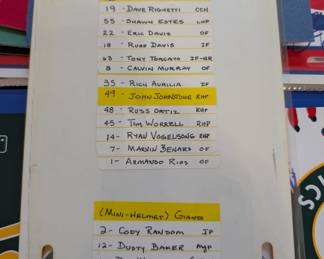 19 - DAVE RIGHETTI CCH
55 - SHAWN ESTES LHP
22 - ERIC DAVIS OF
18 - RUSS DAVIS IF
TONY TORCATO IF-HR
8 - CALVIN MURRAY OF
35 - RICH AURILIA IF
49 - JOHN JOHNSTONE RHP
48 - RUSS ORTIZ RHP
45 - TIM WORRELL RHP
14 - RYAN VOGELSONG RHP
7 - MARVIN BENARD OF
1 - ARMANDO RIOS OF
(MINI-HELMET) GIANTS
2 - CODY RANSOM IF
12 - DUSTY BAKER MGR